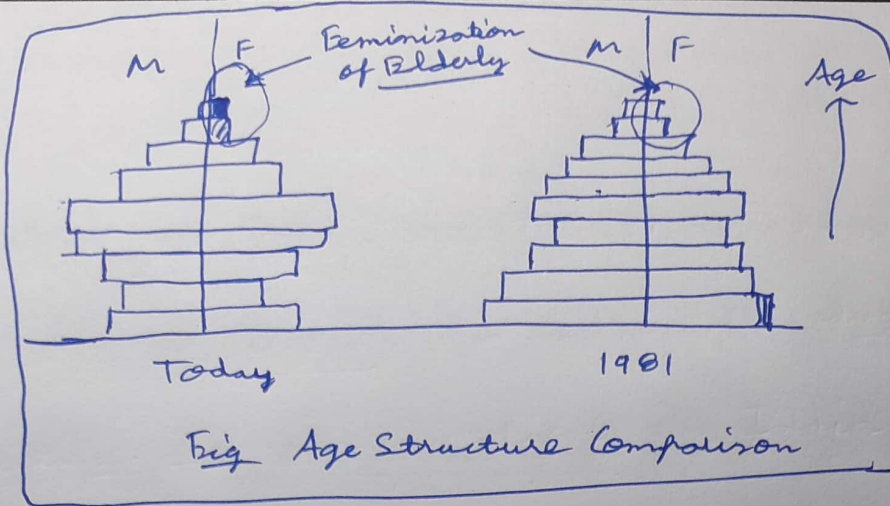 M F Feminization M F
of Elderly
Age
Today 1981
Fig Age Structure Comparison